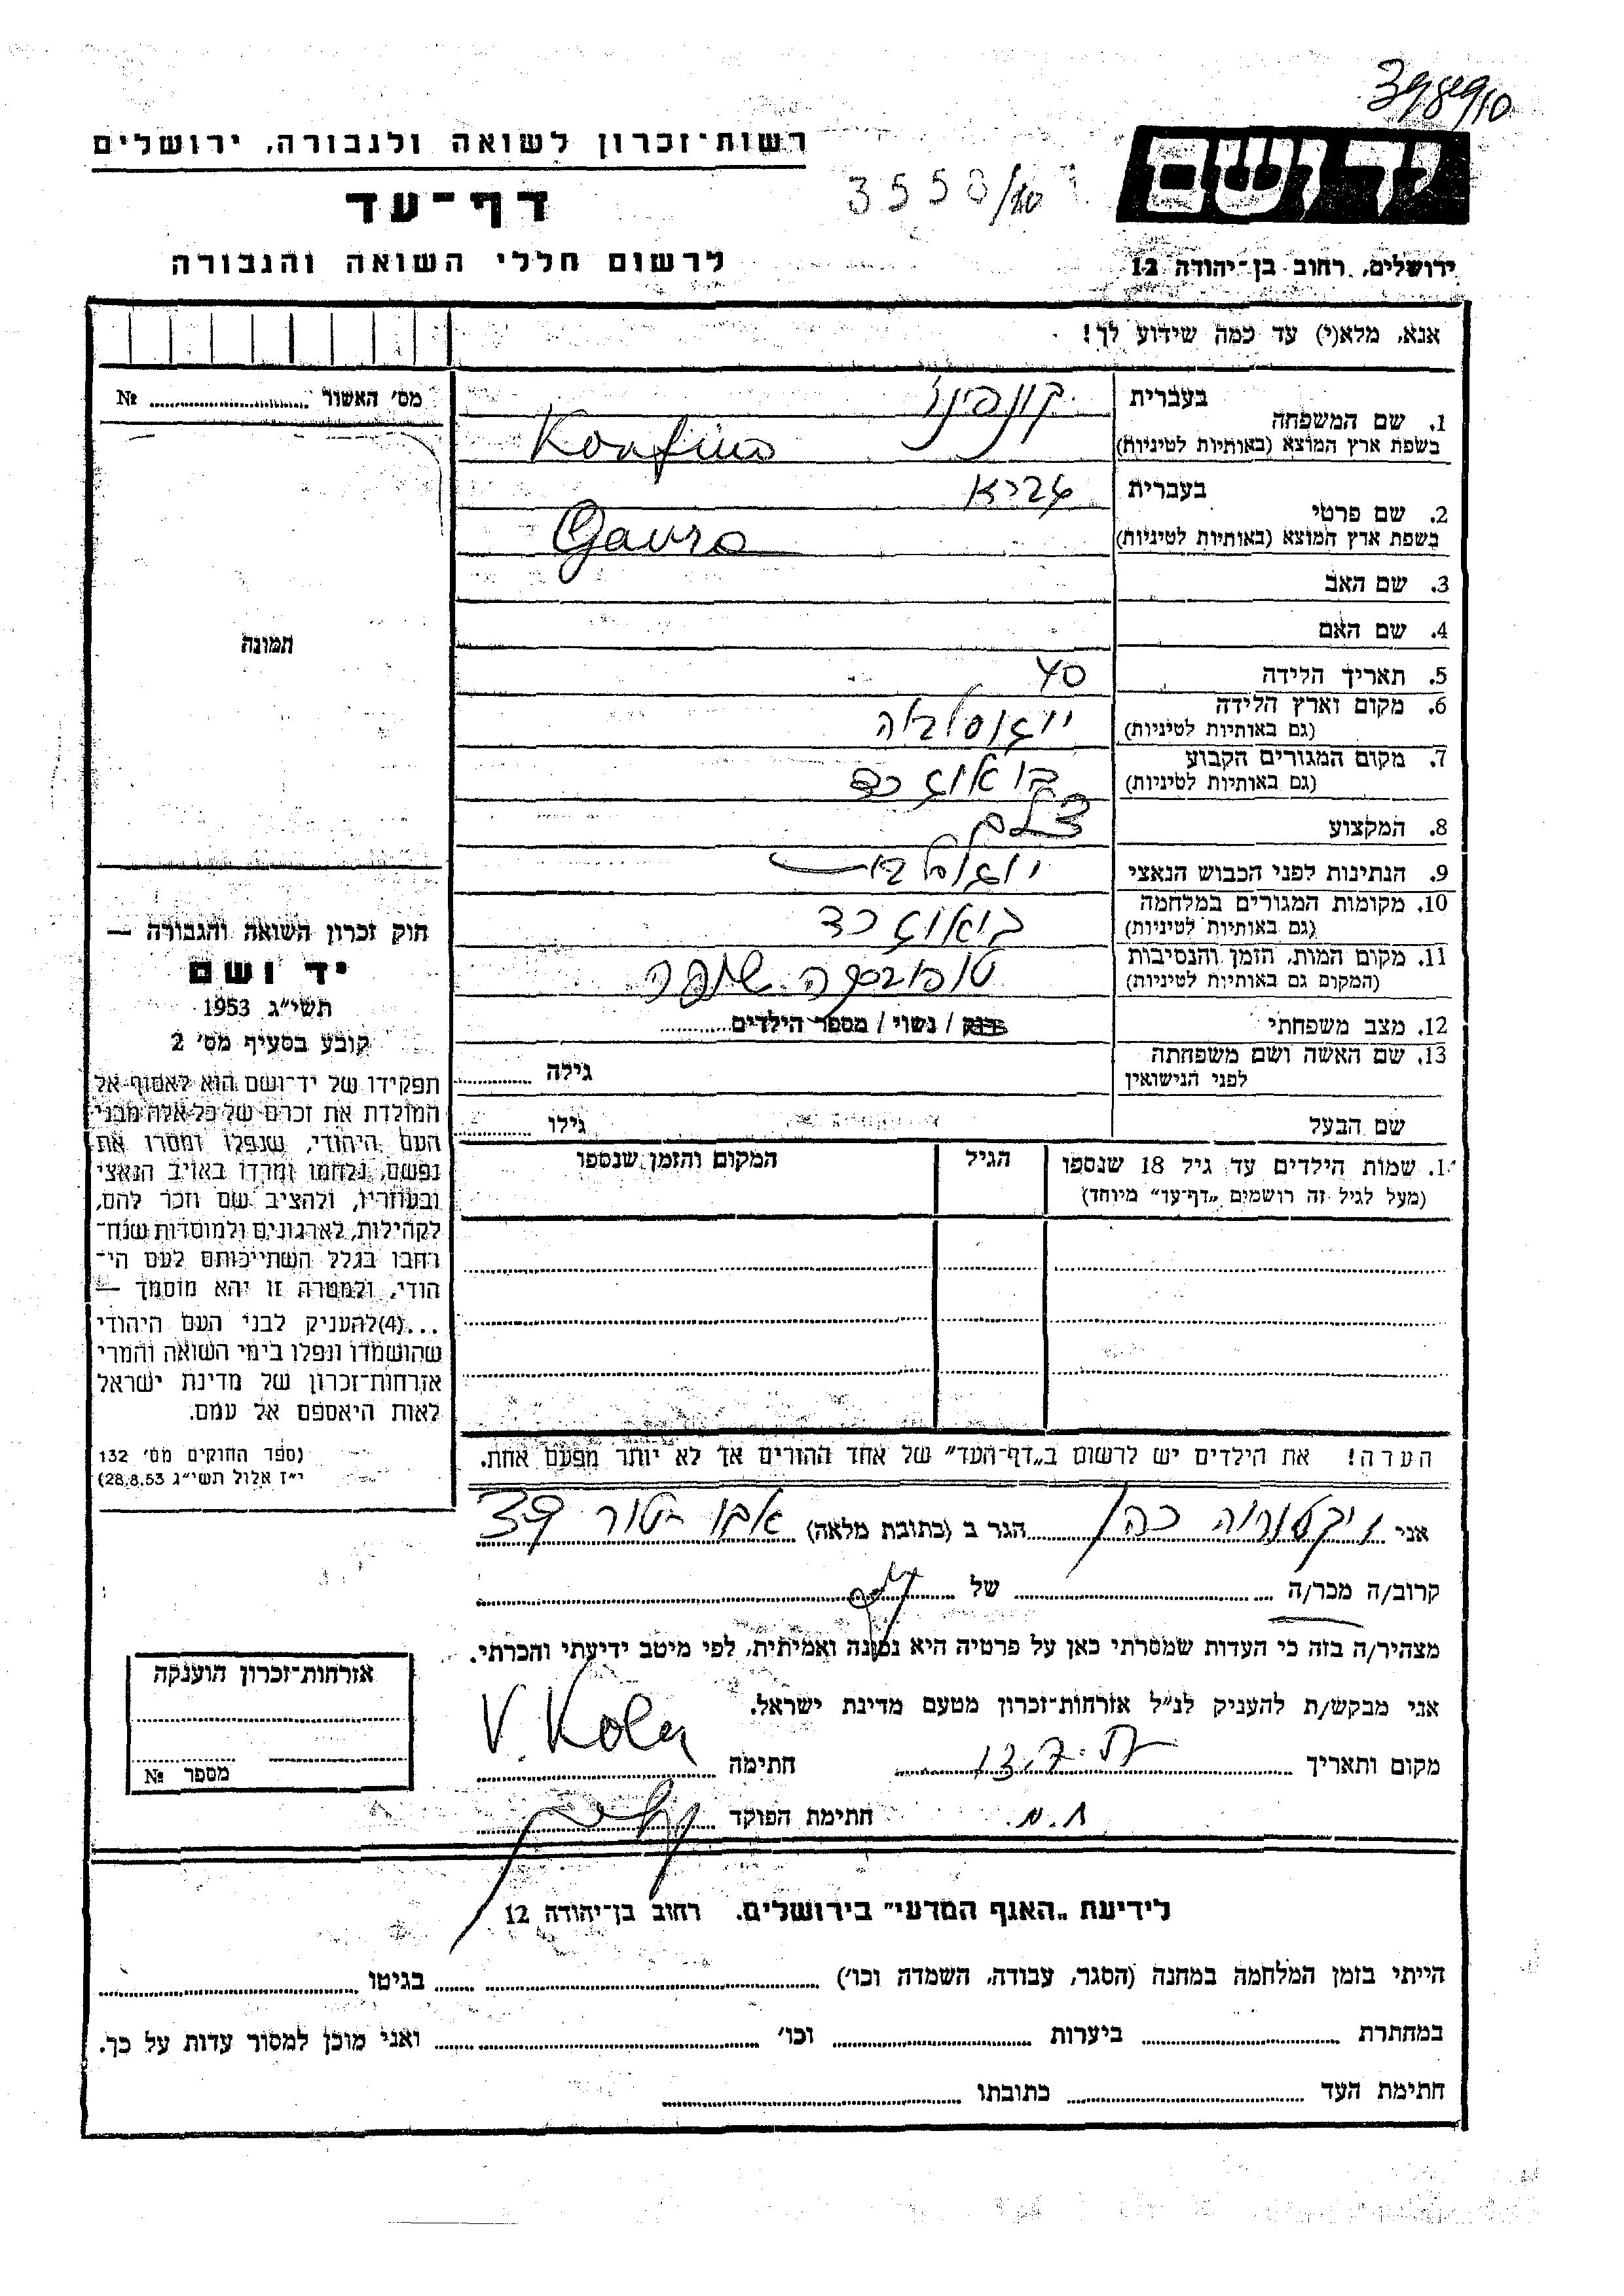 398910
רשות־זכרון לשואה ולגבורה, ירושלים
3558/10
יד ושם
דף־עד
לרשום חללי השואה והגבורה
ירושלים, רחוב בן־יהודה 12
אנא, מלא(י) עד כמה שידוע לך!
מס׳ האשור № 
1. שם המשפחה בעברית קונפינו
בשפת ארץ המוצא (באותיות לטיניות) Konfino
2. שם פרטי בעברית גברא
בשפת ארץ המוצא (באותיות לטיניות) Gavra
3. שם האב
4. שם האם
תמונה
5. תאריך הלידה 40
6. מקום וארץ הלידה יוגוסלביה
(גם באותיות לטיניות)
7. מקום המגורים הקבוע
(גם באותיות לטיניות)
8. המקצוע צלם
9. הנתינות לפני הכבוש הנאצי
10. מקומות המגורים במלחמה
(גם באותיות לטיניות)
11. מקום המות, הזמן והנסיבות
(המקום גם באותיות לטיניות)
12. מצב משפחתי רווק / נשוי / מספר הילדים
13. שם האשה ושם משפחתה גילה
לפני הנישואין
שם הבעל גילו
חוק זכרון השואה והגבורה —
יד ושם
תשי״ג 1953
קובע בסעיף מס׳ 2
תפקידו של יד־ושם הוא לאסוף אל
המולדת את זכרם של כל אלה מבני
העם היהודי, שנפלו ומסרו את
נפשם, נלחמו ומרדו באויב הנאצי
ובעוזריו, ולהציב שם וזכר להם,
לקהילות, לארגונים ולמוסדות שנח־
רבו בגלל השתייכותם לעם הי־
הודי, ולמטרה זו יהא מוסמך —
...(4)להעניק לבני העם היהודי
שהושמדו ונפלו בימי השואה והמרי
אזרחות־זכרון של מדינת ישראל
לאות היאספם אל עמם.
(ספר החוקים מס׳ 132
י״ז אלול תשי״ג 28.8.53)
1. שמות הילדים עד גיל 18 שנספו הגיל המקום והזמן שנספו
(מעל לגיל זה רושמים „דף־עד״ מיוחד)
הערה! את הילדים יש לרשום ב„דף־העד״ של אחד ההורים אך לא יותר מפעם אחת.
אני ויקטוריה כהן הגר ב (כתובת מלאה) אבו טור 39
קרוב/ה מכר/ה של
מצהיר/ה בזה כי העדות שמסרתי כאן על פרטיה היא נכונה ואמיתית, לפי מיטב ידיעתי והכרתי.
אני מבקש/ת להעניק לנ״ל אזרחות־זכרון מטעם מדינת ישראל.
מקום ותאריך 13.7.57 חתימה V. Koen
חתימת הפוקד
אזרחות־זכרון הוענקה
מספר №
לידיעת „האגף המדעי״ בירושלים. רחוב בן־יהודה 12
הייתי בזמן המלחמה במחנה (הסגר, עבודה, השמדה וכו׳) בגיטו
במחתרת ביערות וכו׳ ואני מוכן למסור עדות על כך.
חתימת העד כתובתו